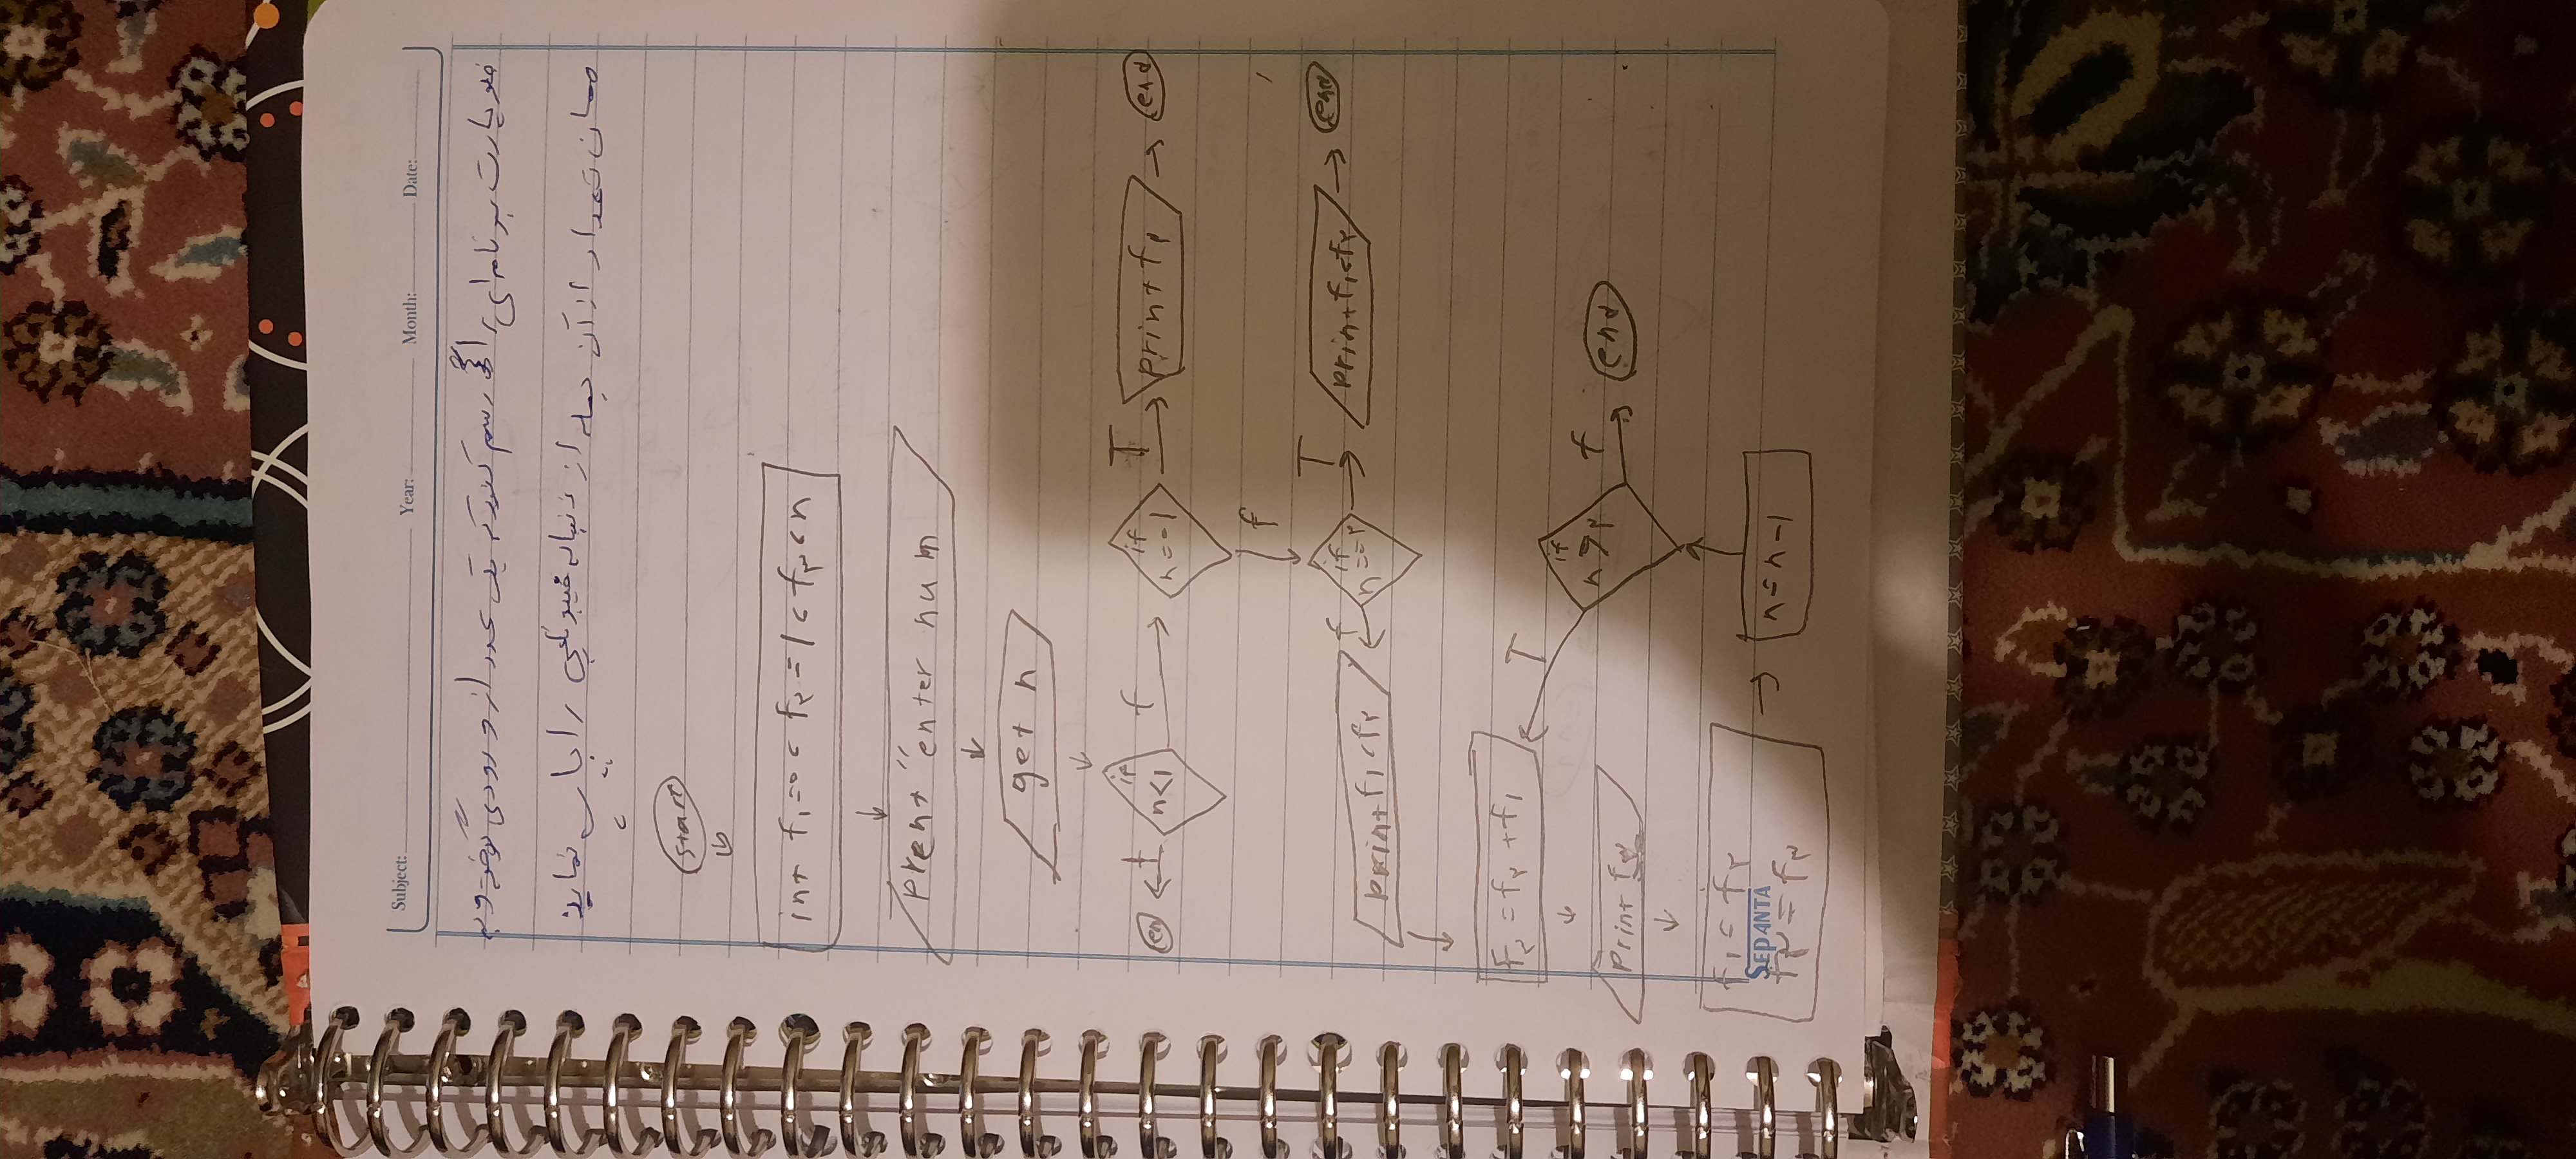 Subject: Year: Month: Date:
فلوچارت برنامه ای را رسم کنید که یک عدد از ورودی گرفته و به
همان تعداد از آن جمله از دنباله فیبوناچی را چاپ نماید
start
int f۱=۰ , f۲=۱ , f۳ , n
prent "enter num
get n
if n<1
t
en
f
if n==1
T
print f۲
end
f
if n==۲
T
print f۱,f۲
end
f
print f۱,f۲
F۳ = f۲ + f۱
T
if n>۲
f
end
print f۳
f۱ = f۲
SEPANTA
f۲ = f۳
n=n-1